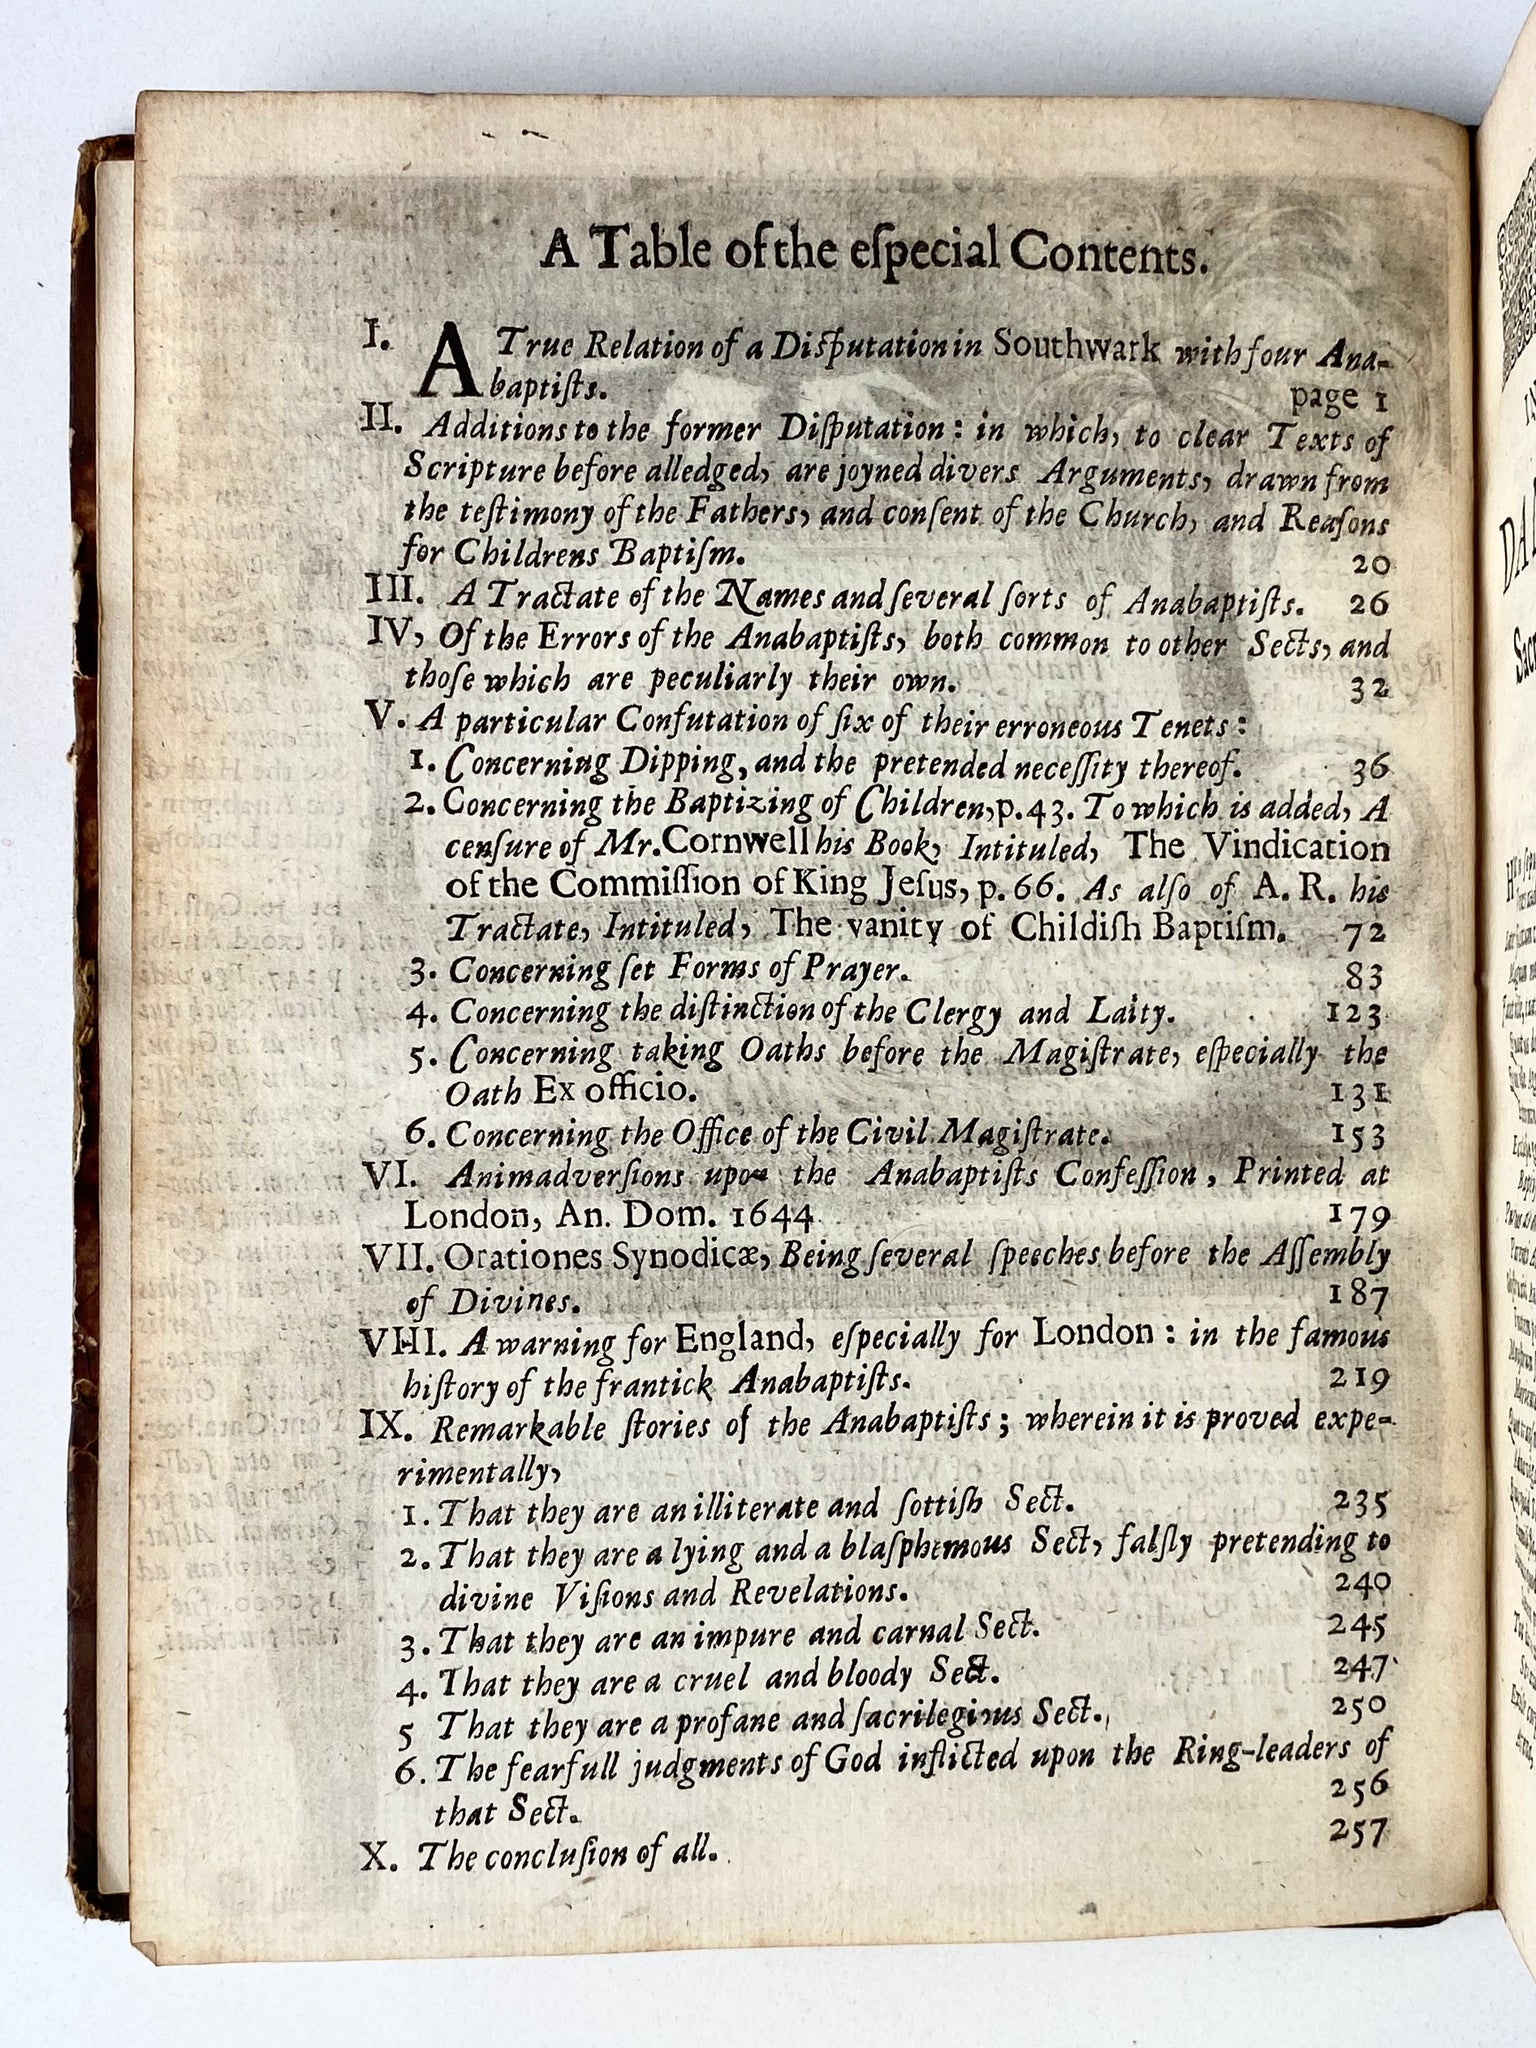 A Table of the eſpecial Contents.
I. A True Relation of a Diſputation in Southwark with four Ana-
baptiſts. page 1
II. Additions to the former Diſputation: in which, to clear Texts of
Scripture before alledged, are joyned divers Arguments, drawn from
the teſtimony of the Fathers, and conſent of the Church, and Reaſons
for Childrens Baptiſm. 20
III. A Tractate of the Names and ſeveral ſorts of Anabaptiſts. 26
IV, Of the Errors of the Anabaptiſts, both common to other Sects, and
thoſe which are peculiarly their own. 32
V. A particular Confutation of ſix of their erroneous Tenets:
1. Concerning Dipping, and the pretended neceſſity thereof. 36
2. Concerning the Baptizing of Children, p. 43. To which is added, A
cenſure of Mr. Cornwell his Book, Intituled, The Vindication
of the Commiſſion of King Jeſus, p. 66. As alſo of A. R. his
Tractate, Intituled, The vanity of Childiſh Baptiſm. 72
3. Concerning ſet Forms of Prayer. 83
4. Concerning the diſtinction of the Clergy and Laity. 123
5. Concerning taking Oaths before the Magiſtrate, eſpecially the
Oath Ex officio. 131
6. Concerning the Office of the Civil Magiſtrate. 153
VI. Animadverſions upon the Anabaptiſts Confeſſion, Printed at
London, An. Dom. 1644 179
VII. Orationes Synodicæ, Being ſeveral ſpeeches before the Aſſembly
of Divines. 187
VIII. A warning for England, eſpecially for London: in the famous
hiſtory of the frantick Anabaptiſts. 219
IX. Remarkable ſtories of the Anabaptiſts; wherein it is proved expe-
rimentally,
1. That they are an illiterate and ſottiſh Sect. 235
2. That they are a lying and a blaſphemous Sect, falſly pretending to
divine Viſions and Revelations. 240
3. That they are an impure and carnal Sect. 245
4. That they are a cruel and bloody Sect. 247
5 That they are a profane and ſacrilegious Sect. 250
6. The fearfull judgments of God inflicted upon the Ring-leaders of
that Sect. 256
X. The concluſion of all. 257